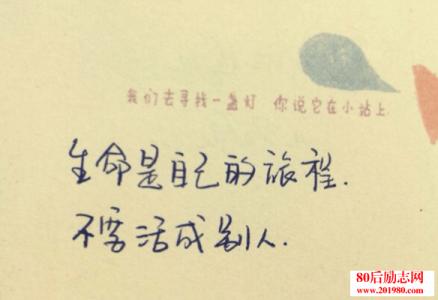 我们去寻找一盏灯 你说它在小站上
生命是自己的旅程.
不要活成别人.
80后励志网
www.201980.com